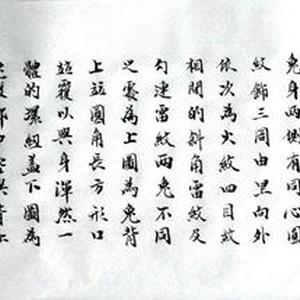 兔身两側有同心圆
紋飾三周由里向外
依次為火紋四目紋
相間的斜角雷紋及
勾連雷紋两兔不同
之處為上圖為兔背
上並圆角長方形口
並覆以與身渾然一
體的環纽盖下圖為